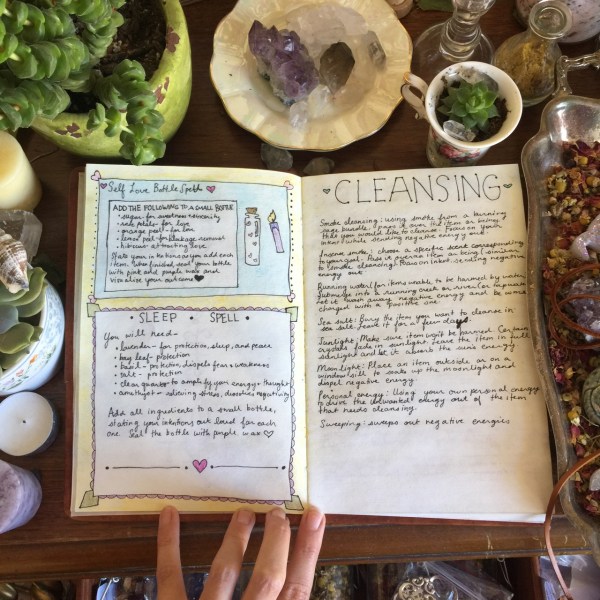 Self Love Bottle Spell
ADD THE FOLLOWING TO A SMALL BOTTLE
• sugar - for sweetness + sincerity
• rose petals - for love
• orange peel - for love
• lemon peel - for blockage removal
• hibiscus - attracting love
State your intentions as you add each
item. When finished seal your bottle
with pink and purple wax and
visualise your outcome
• SLEEP • SPELL •
You will need -
• lavender - for protection, sleep, and peace
• bay leaf - protection
• basil - protection, dispels fear + weakness
• salt - protection
• clear quartz - to amplify your energy + thought
• amethyst - relieving stress, dissolves negativity
Add all ingredients to a small bottle,
stating your intentions out loud for each
one. Seal the bottle with purple wax
CLEANSING
Smoke cleansing: using smoke from a burning
sage bundle, pass it over the item or being
that you would like to cleanse. Focus on your
intent while sending negative energy out
Incense smoke: choose a specific scent corresponding
to your goal. Pass it over an item or being (similar
to smoke cleansing). Focus on intent sending negative
energy out
Running water: for items unable to be harmed by water,
submerge into a running creek or river. Can
let it wash away negative energy and be
charged with a positive one.
Sea salt: Bury the item you want to cleanse in
sea salt. Leave it for a few days.
Sunlight: Make sure item won't be harmed. Certain
crystals fade in sunlight. Leave the item in full
sunlight and let it absorb the suns energy
Moonlight: Place an item outside or on a
windowsill to soak up the moonlight and
dispel negative energy.
Personal energy: Using your own personal energy
to drive the unwanted energy out of the item
that needs cleansing.
Sweeping: sweeps out negative energies